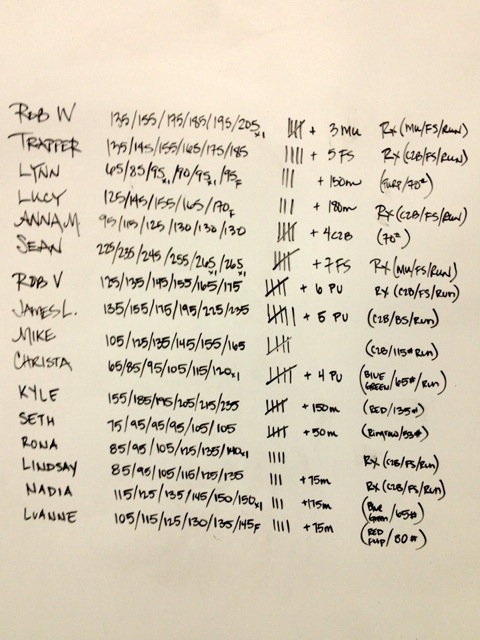 ROB W 135/155/175/185/195/205x1 |||| + 3 MU RX (MU/FS/RUN)
TRAPPER 135/145/155/165/175/185 |||| + 5 FS RX (C2B/FS/RUN)
LYNN 65/85/95x1/90/95x1/95F ||| + 150m (PURP/70#)
LUCY 125/145/155/165/170F ||| + 180m RX (C2B/FS/RUN)
ANNA.M 95/115/125/130/130/130 |||| + 4 C2B (70#)
SEAN 225/235/245/255/265x1/265x1 |||| + 7 FS RX (MU/FS/RUN)
ROB V 125/135/145/155/165/175 |||| + 6 PU RX (C2B/FS/RUN)
JAMES L. 135/155/175/195/225/235 |||| | + 5 PU (C2B/BS/RUN)
MIKE 105/125/135/145/155/165 |||| (C2B/115# RUN)
CHRISTA 65/85/95/105/115/120x1 |||| | + 4 PU (BLUE GREEN/65#/RUN)
KYLE 155/185/195/205/215/235 |||| + 150m (RED/135#)
SETH 75/95/95/95/105/105 |||| + 50m (Ringrow/53#)
RONA 85/95/105/125/135/140x1 |||| RX (C2B/FS/RUN)
LINDSAY 85/95/105/115/125/135 ||| + 75m RX (C2B/FS/RUN)
NADIA 115/125/135/145/150/150x1 ||| + 175m (BLUE GREEN/65#)
LUANNE 105/115/125/130/135/145F |||| + 75m (RED /80#)